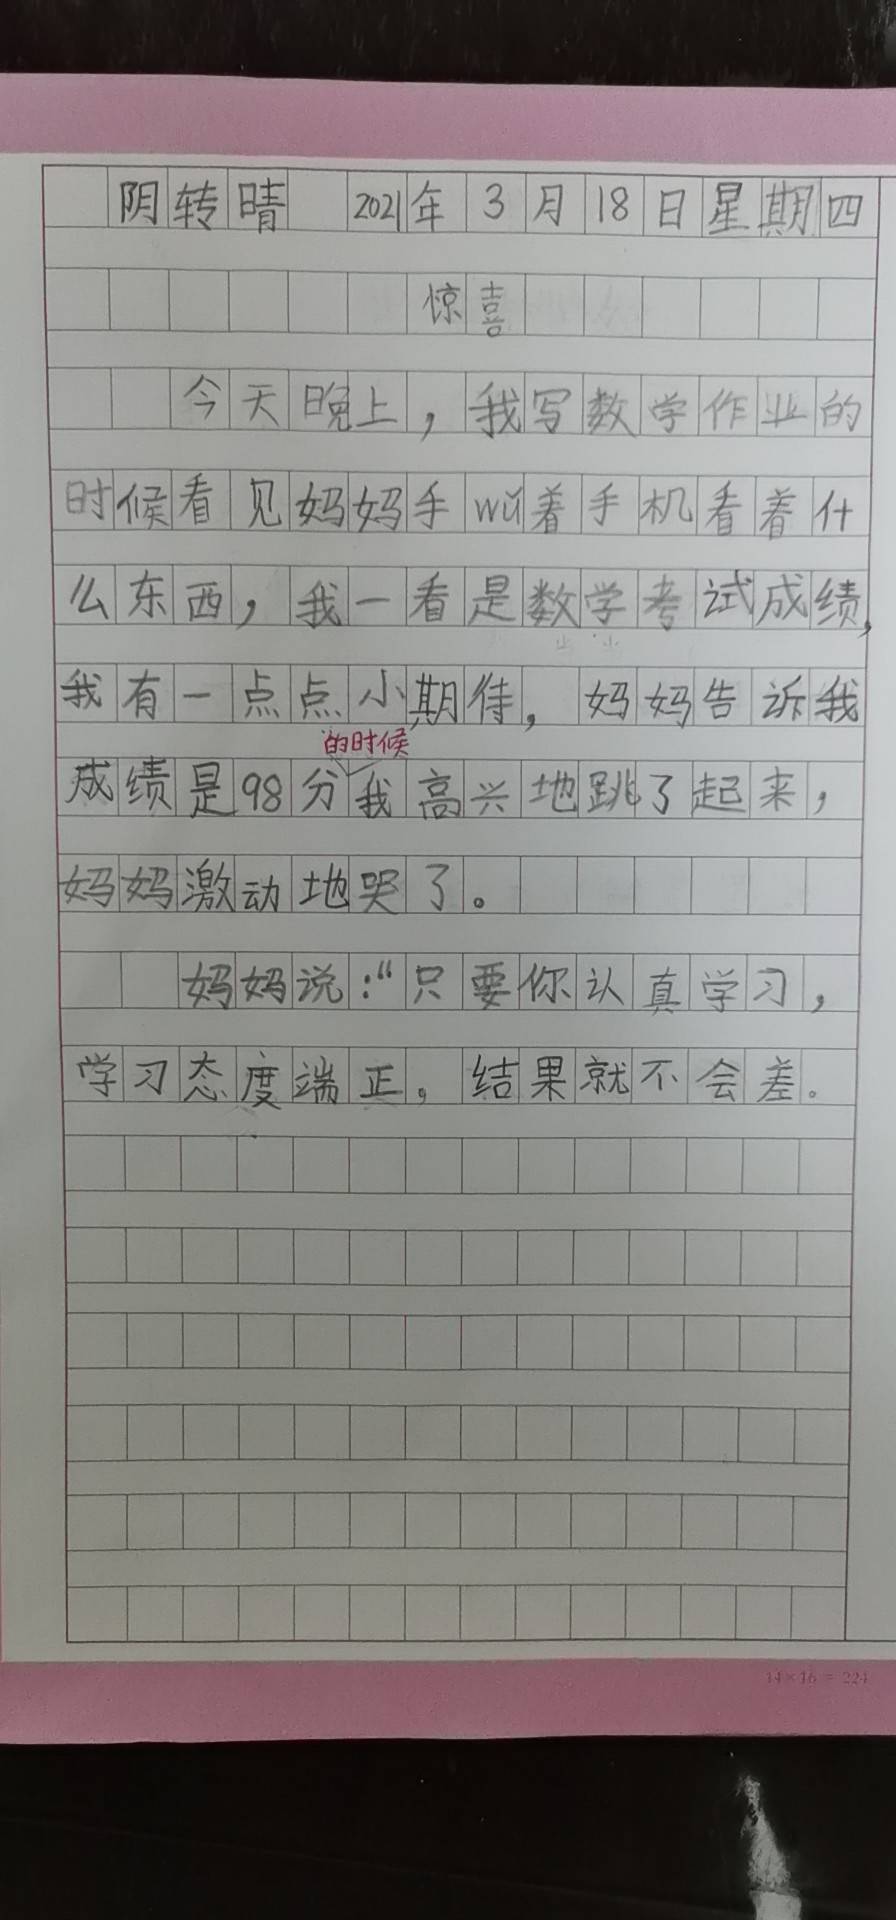 阴转晴 2021年3月18日星期四
惊喜
今天晚上，我写数学作业的
时候看见妈妈手wǔ着手机看着什
么东西，我一看是数学考试成绩，
我有一点点小期待，妈妈告诉我
的时候
成绩是98分我高兴地跳了起来，
妈妈激动地哭了。
妈妈说：“只要你认真学习，
学习态度端正。结果就不会差。
14×16=224